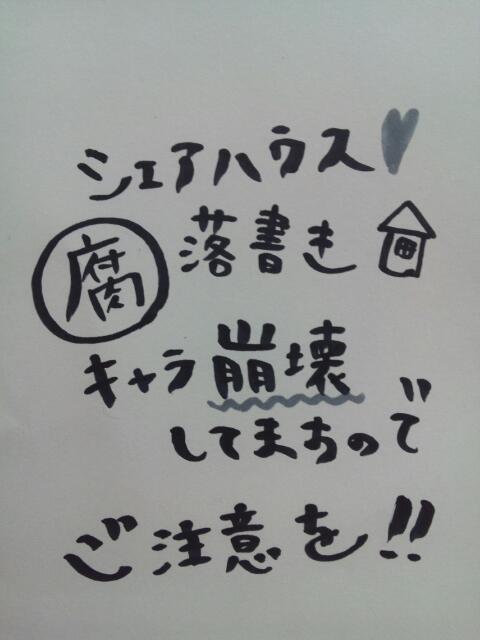 シェアハウス
腐 落書き
キャラ崩壊
してまちので
ご注意を!!